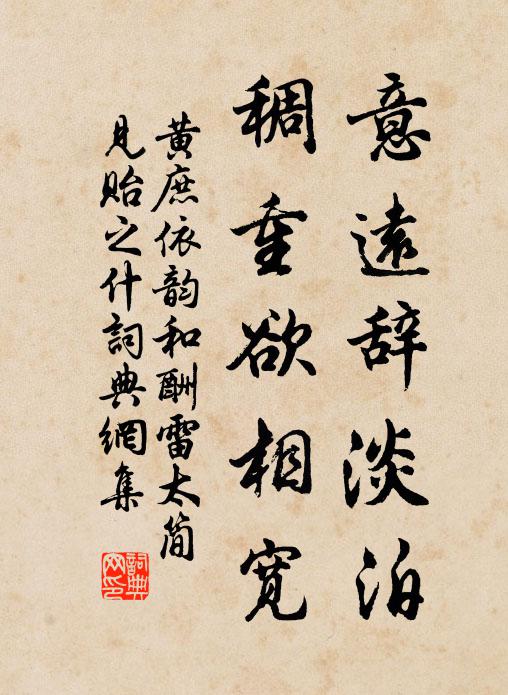 意遠辞淡泊
稠重欲相寬
黃庶依韵和酬雷太简
見貽之什詞典網集
詞典